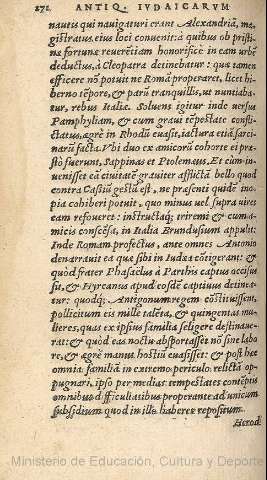 272. ANTIQ. IVDAICARVM
nautis qui nauigaturi erant Alexandriã, ma
gistratus eius loci conuenit: à quibus ob pristi
næ fortunæ reuerẽtiam honorificè in eam urbẽ
deductus, à Cleopatra detinebatur: quæ tamen
efficere nõ potuit ne Romã properaret, licet hi-
berno tẽpore, & parũ tranquillis, ut nuntiaba-
tur, rebus Italiæ. Soluens igitur inde uersus
Pamphyliam, & cum graui tẽpestate confli-
ctatus, ægrè in Rhodũ euasit, iactura etiã sarci-
narũ facta. Vbi duo ex amicorũ cohorte ei præ-
stò fuerunt, Sappinas et Ptolemæus. Et cùm in-
uenisset eã ciuitatẽ grauiter afflictã bello quod
contra Cassiũ gestũ est, ne præsenti quidẽ ino-
pia cohiberi potuit, quo minus uel supra uires
eam refoueret: instructaq́; triremi & cum a-
micis conscẽsa, in Italiã Brundusium appulit:
Inde Romam profectus, ante omnes Antonio
denarrauit ea quæ sibi in Iudæa cõtigerant: &
quòd frater Phasaelus à Parthis captus occisus
sit, & Hyrcanus apud eosdẽ captiuus detinea-
tur: quodq́; Antigonum regem cõstituissent,
polliciturum eis mille talẽta, & quingentas mu-
lieres, quas ex ipsius familia seligere destinaue-
rat: & quòd eas noctu absportasset nõ sine labo
re, & ægrè manus hostiũ euasisset: & post hæc
omnia familiã in extremo periculo relictã op-
pugnari, ipso per medias tempestates contẽptis
omnibus difficultatibus properante ad unicum
subsidium quod in illo haberet repositum.
Herod
Ministerio de Educación, Cultura y Deporte